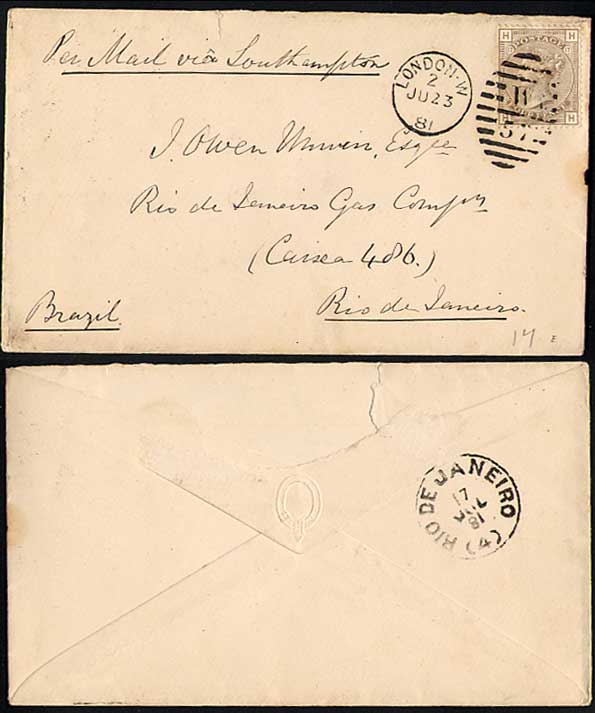 Per Mail viâ Southampton
LONDON·W
2
JU 23
81
H H
POSTAGE
W
37
H H
J. Owen Unwin, Esqre
Rio de Janeiro Gas Compy
(Caixa 486.)
Rio de Janeiro.
Brazil.
14 E
RIO DE JANEIRO
17
JUL
81
(4)